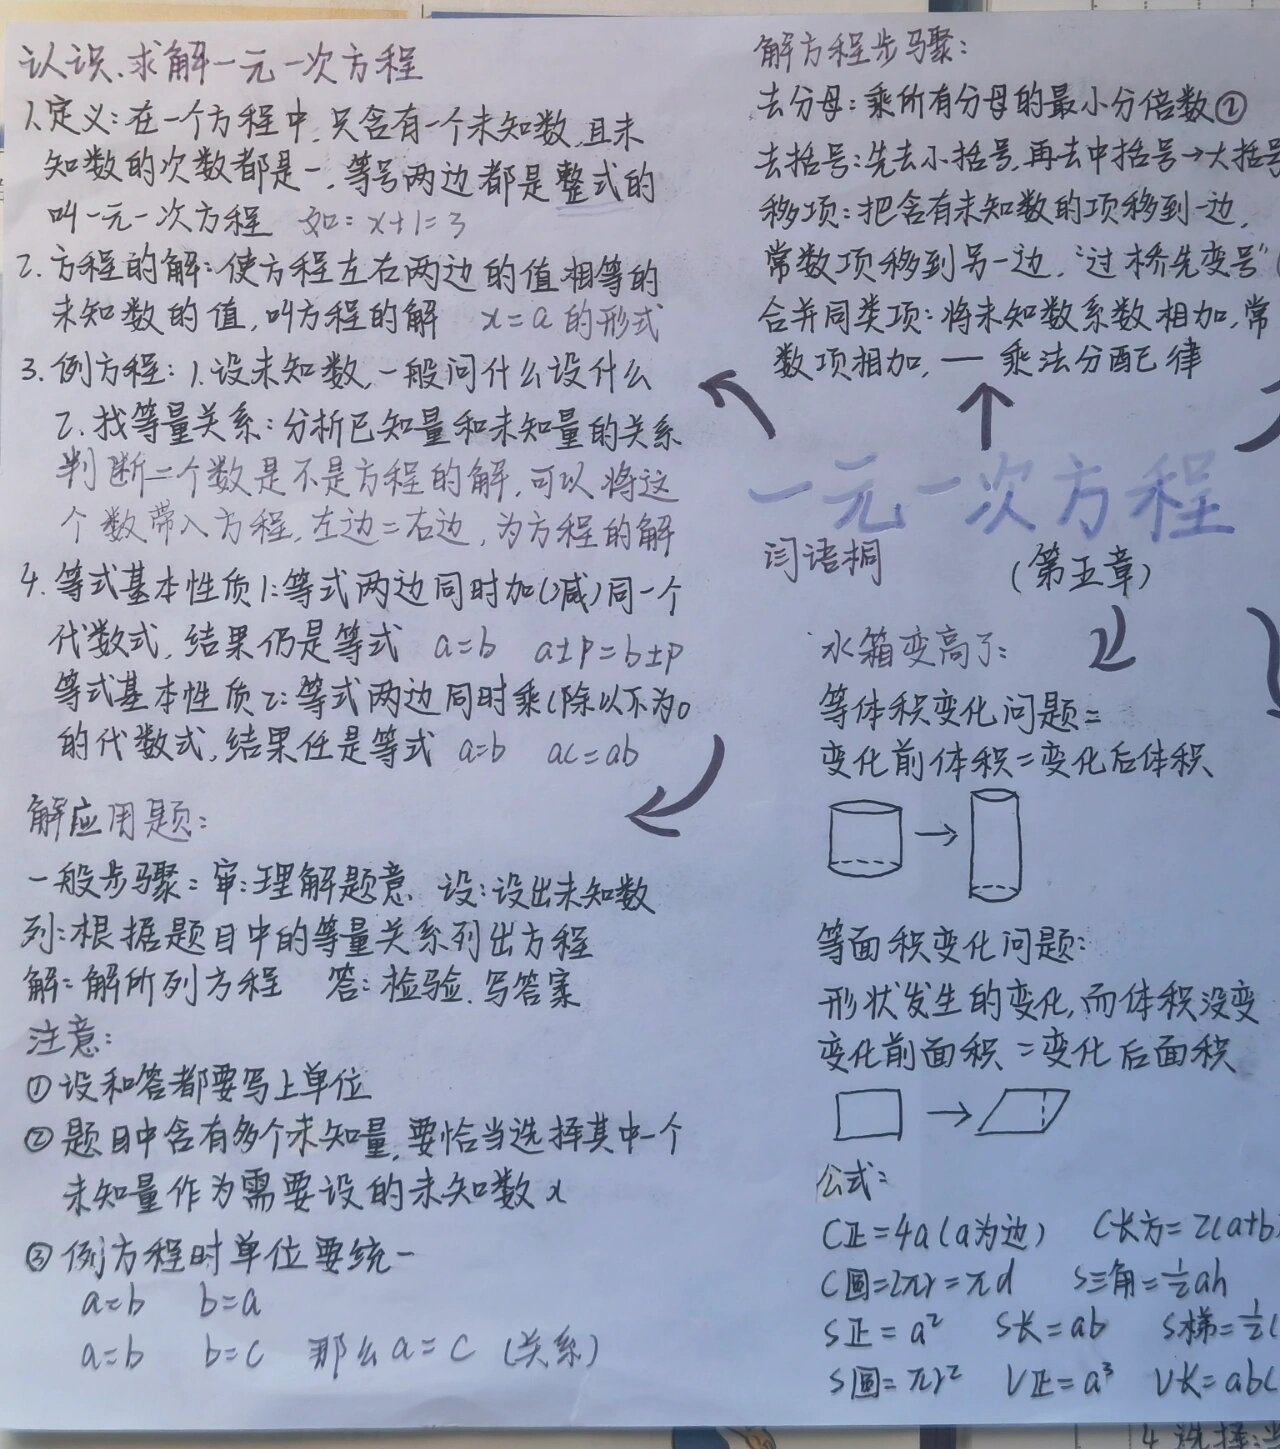 认识、求解一元一次方程
1.定义:在一个方程中,只含有一个未知数,且未
知数的次数都是一,等号两边都是整式的
叫一元一次方程 如:x+1=3
2.方程的解:使方程左右两边的值相等的
未知数的值,叫方程的解 x=a的形式
3.例方程:1.设未知数,一般问什么设什么
2.找等量关系:分析已知量和未知量的关系
判断一个数是不是方程的解,可以将这
个数带入方程,左边=右边,为方程的解
4.等式基本性质1:等式两边同时加(减)同一个
代数式,结果仍是等式 a=b a±p=b±p
等式基本性质2:等式两边同时乘(除以不为0
的代数式,结果任是等式 a=b ac=ab
解应用题:
一般步骤:审:理解题意 设:设出未知数
列:根据题目中的等量关系列出方程
解:解所列方程 答:检验、写答案
注意:
①设和答都要写上单位
②题目中含有多个未知量,要恰当选择其中一个
未知量作为需要设的未知数x
③例方程时单位要统一
a=b b=a
a=b b=c 那么a=c (关系)
解方程步骤:
去分母:乘所有分母的最小分倍数②
去括号:先去小括号,再去中括号→大括号
移项:把含有未知数的项移到一边,
常数项移到另一边,“过桥先变号”
合并同类项:将未知数系数相加,常
数项相加,一乘法分配律
一元一次方程
闫语桐 (第五章)
水箱变高了:
等体积变化问题:
变化前体积=变化后体积
等面积变化问题:
形状发生的变化,而体积没变
变化前面积=变化后面积
公式:
C正=4a(a为边) C长方=2(a+b)
C圆=2πr=πd S三角=½ah
S正=a² S长=ab S梯=½(
S圆=πr² V正=a³ V长=abc
4.选择: